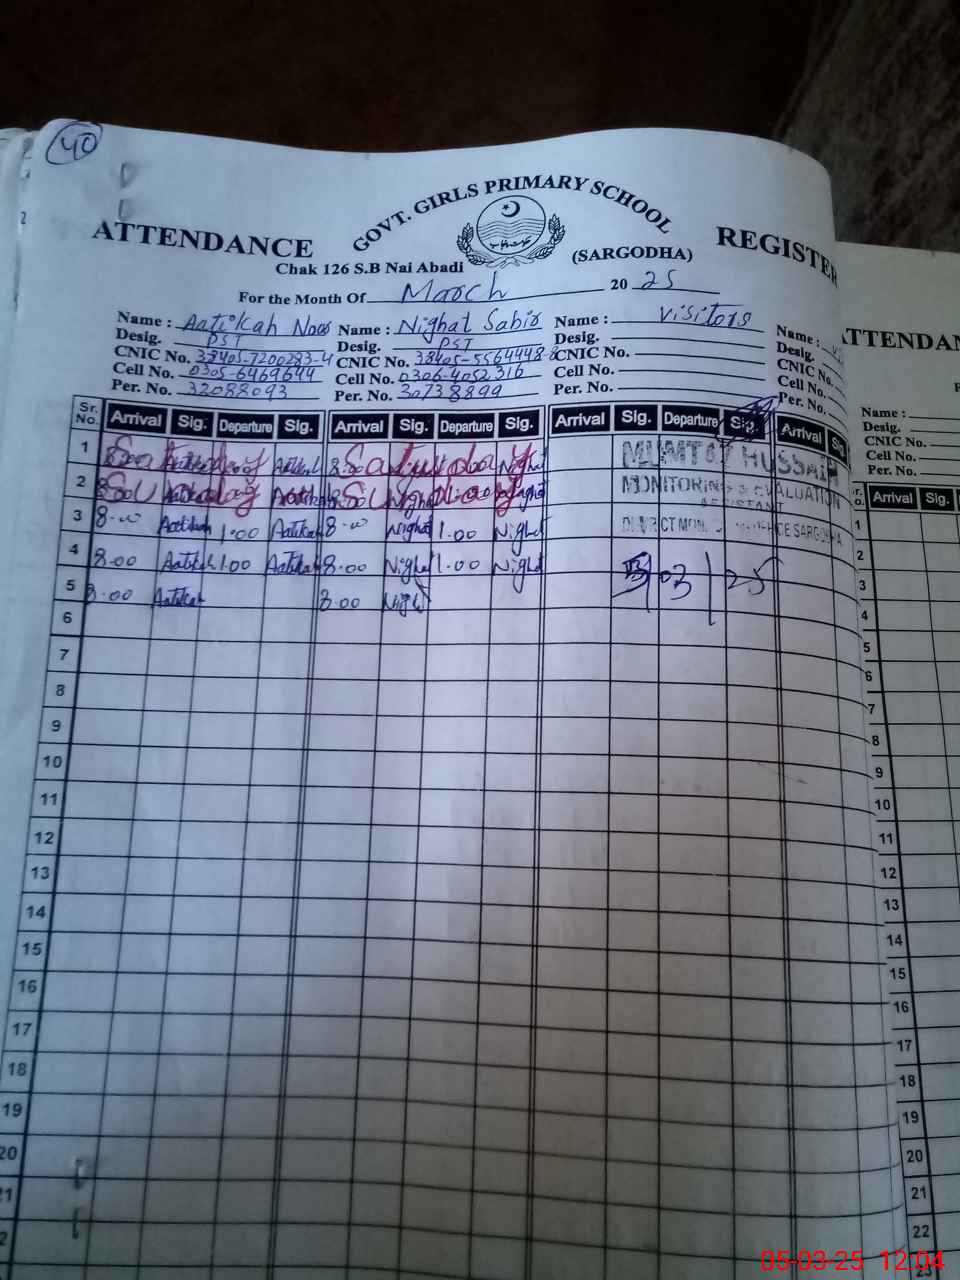 40
GOVT. GIRLS PRIMARY SCHOOL
ATTENDANCE REGISTER
Chak 126 S.B Nai Abadi (SARGODHA)
For the Month Of March 2025
Name : Aatikah Noor Name : Nighat Sabir Name : Visitors Name :
Desig. PST Desig. PST Desig. Desig.
CNIC No. 38405-7200283-4 CNIC No. 38405-5564448-8 CNIC No. CNIC No.
Cell No. 0305-6469644 Cell No. 0306-4052316 Cell No. Cell No.
Per. No. 32088093 Per. No. 30738899 Per. No. Per. No.
Sr. No. Arrival Sig. Departure Sig. Arrival Sig. Departure Sig. Arrival Sig. Departure Sig. Arrival Sig.
1 8.00 Saturday Aatikah 8.00 Saturday Nighat MUMTAZ HUSSAIN
2 8.00 Sunday Aatikah 8.00 Sunday Nighat MONITORING & EVALUATION
ASSISTANT
3 8.00 Aatikah 1.00 Aatikah 8.00 Nighat 1.00 Nighat DISTRICT MONITORING OFFICE SARGODHA
4 8.00 Aatikah 1.00 Aatikah 8.00 Nighat 1.00 Nighat 5/03/25
5 8.00 Aatikah 8.00 Nighat
6
7
8
9
10
11
12
13
14
15
16
17
18
19
20
21
2
ATTENDAN
Name :
Desig.
CNIC No.
Cell No.
Per. No.
Arrival Sig.
1
2
3
4
5
6
7
8
9
10
11
12
13
14
15
16
17
18
19
20
21
22
23
05-03-25 12:04